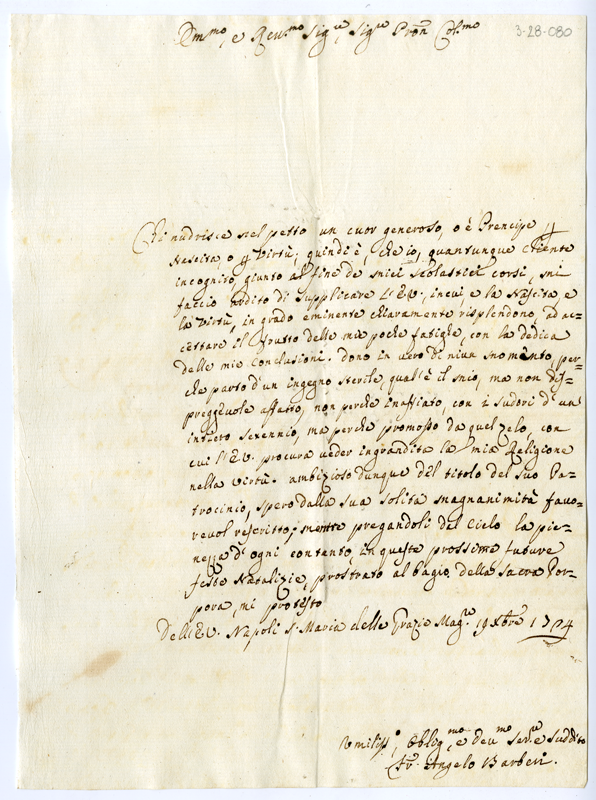 3-28-080
Em.mo, e Rev.mo Sig.re, Sig.re Pron Col.mo
Chi nudrisce nel petto un cuor generoso, o è Prencipe p
Nascita, o p Virtù; quindi è, che io, quantunque Cliente
incognito, giunto al fine de miei scolastici corsi, mi
faccio ardito di supplicare l'E.V., in cui, e la Nascita, e
la Virtù, in grado eminente chiaramente risplendono, ad ac-
cettare il frutto delle mie poche fatighe, con la dedica
delle mie Conclusioni. Dono in vero di niun momento per-
che parto d'un ingegno sterile, qual'è il mio, ma non dis-
preggevole affatto, non perche inaffiato, con i sudori d'un
intiero sexennio, ma perche promosso da quel zelo, con
cui l'E.V. procura veder ingrandita la mia Religione
nella virtù. Ambizioso dunque del titolo del suo Pa-
trocinio, spero dalla sua solita magnanimità favo-
revol rescritto; mentre pregandoli dal Cielo la pie-
nezza d'ogni contento, in queste prossime future
feste Natalizie, prostrato al bagio della Sacra Por-
pora, mi protesto
Dell'E.V. Napoli S. Maria delle Grazie Mag.re 19 Xbre 1724
Umiliss., Oblig.mo, e Dev.mo Ser.re e Suddito
Fr. Angelo Barberi.